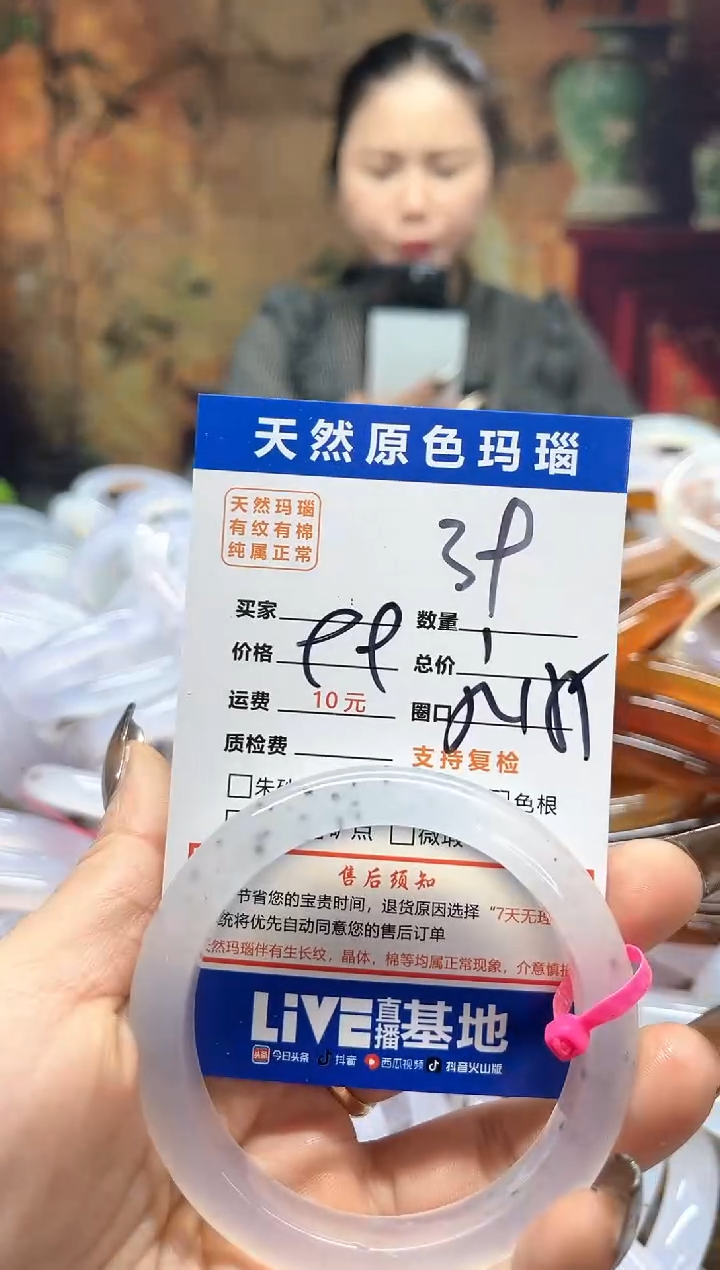 天然原色玛瑙
天然玛瑙
有纹有棉
纯属正常
买家
数量
价格
总价
运费 10元
圈口
质检费
支持复检
色根
售后须知
节省您的宝贵时间，退货原因选择 “7天无理
统将优先自动同意您的售后订单
然玛瑙伴有生长纹，晶体，棉等均属正常现象，介意慎拍
LiVE直播基地
头条 今日头条 抖音 西瓜视频 抖音火山版